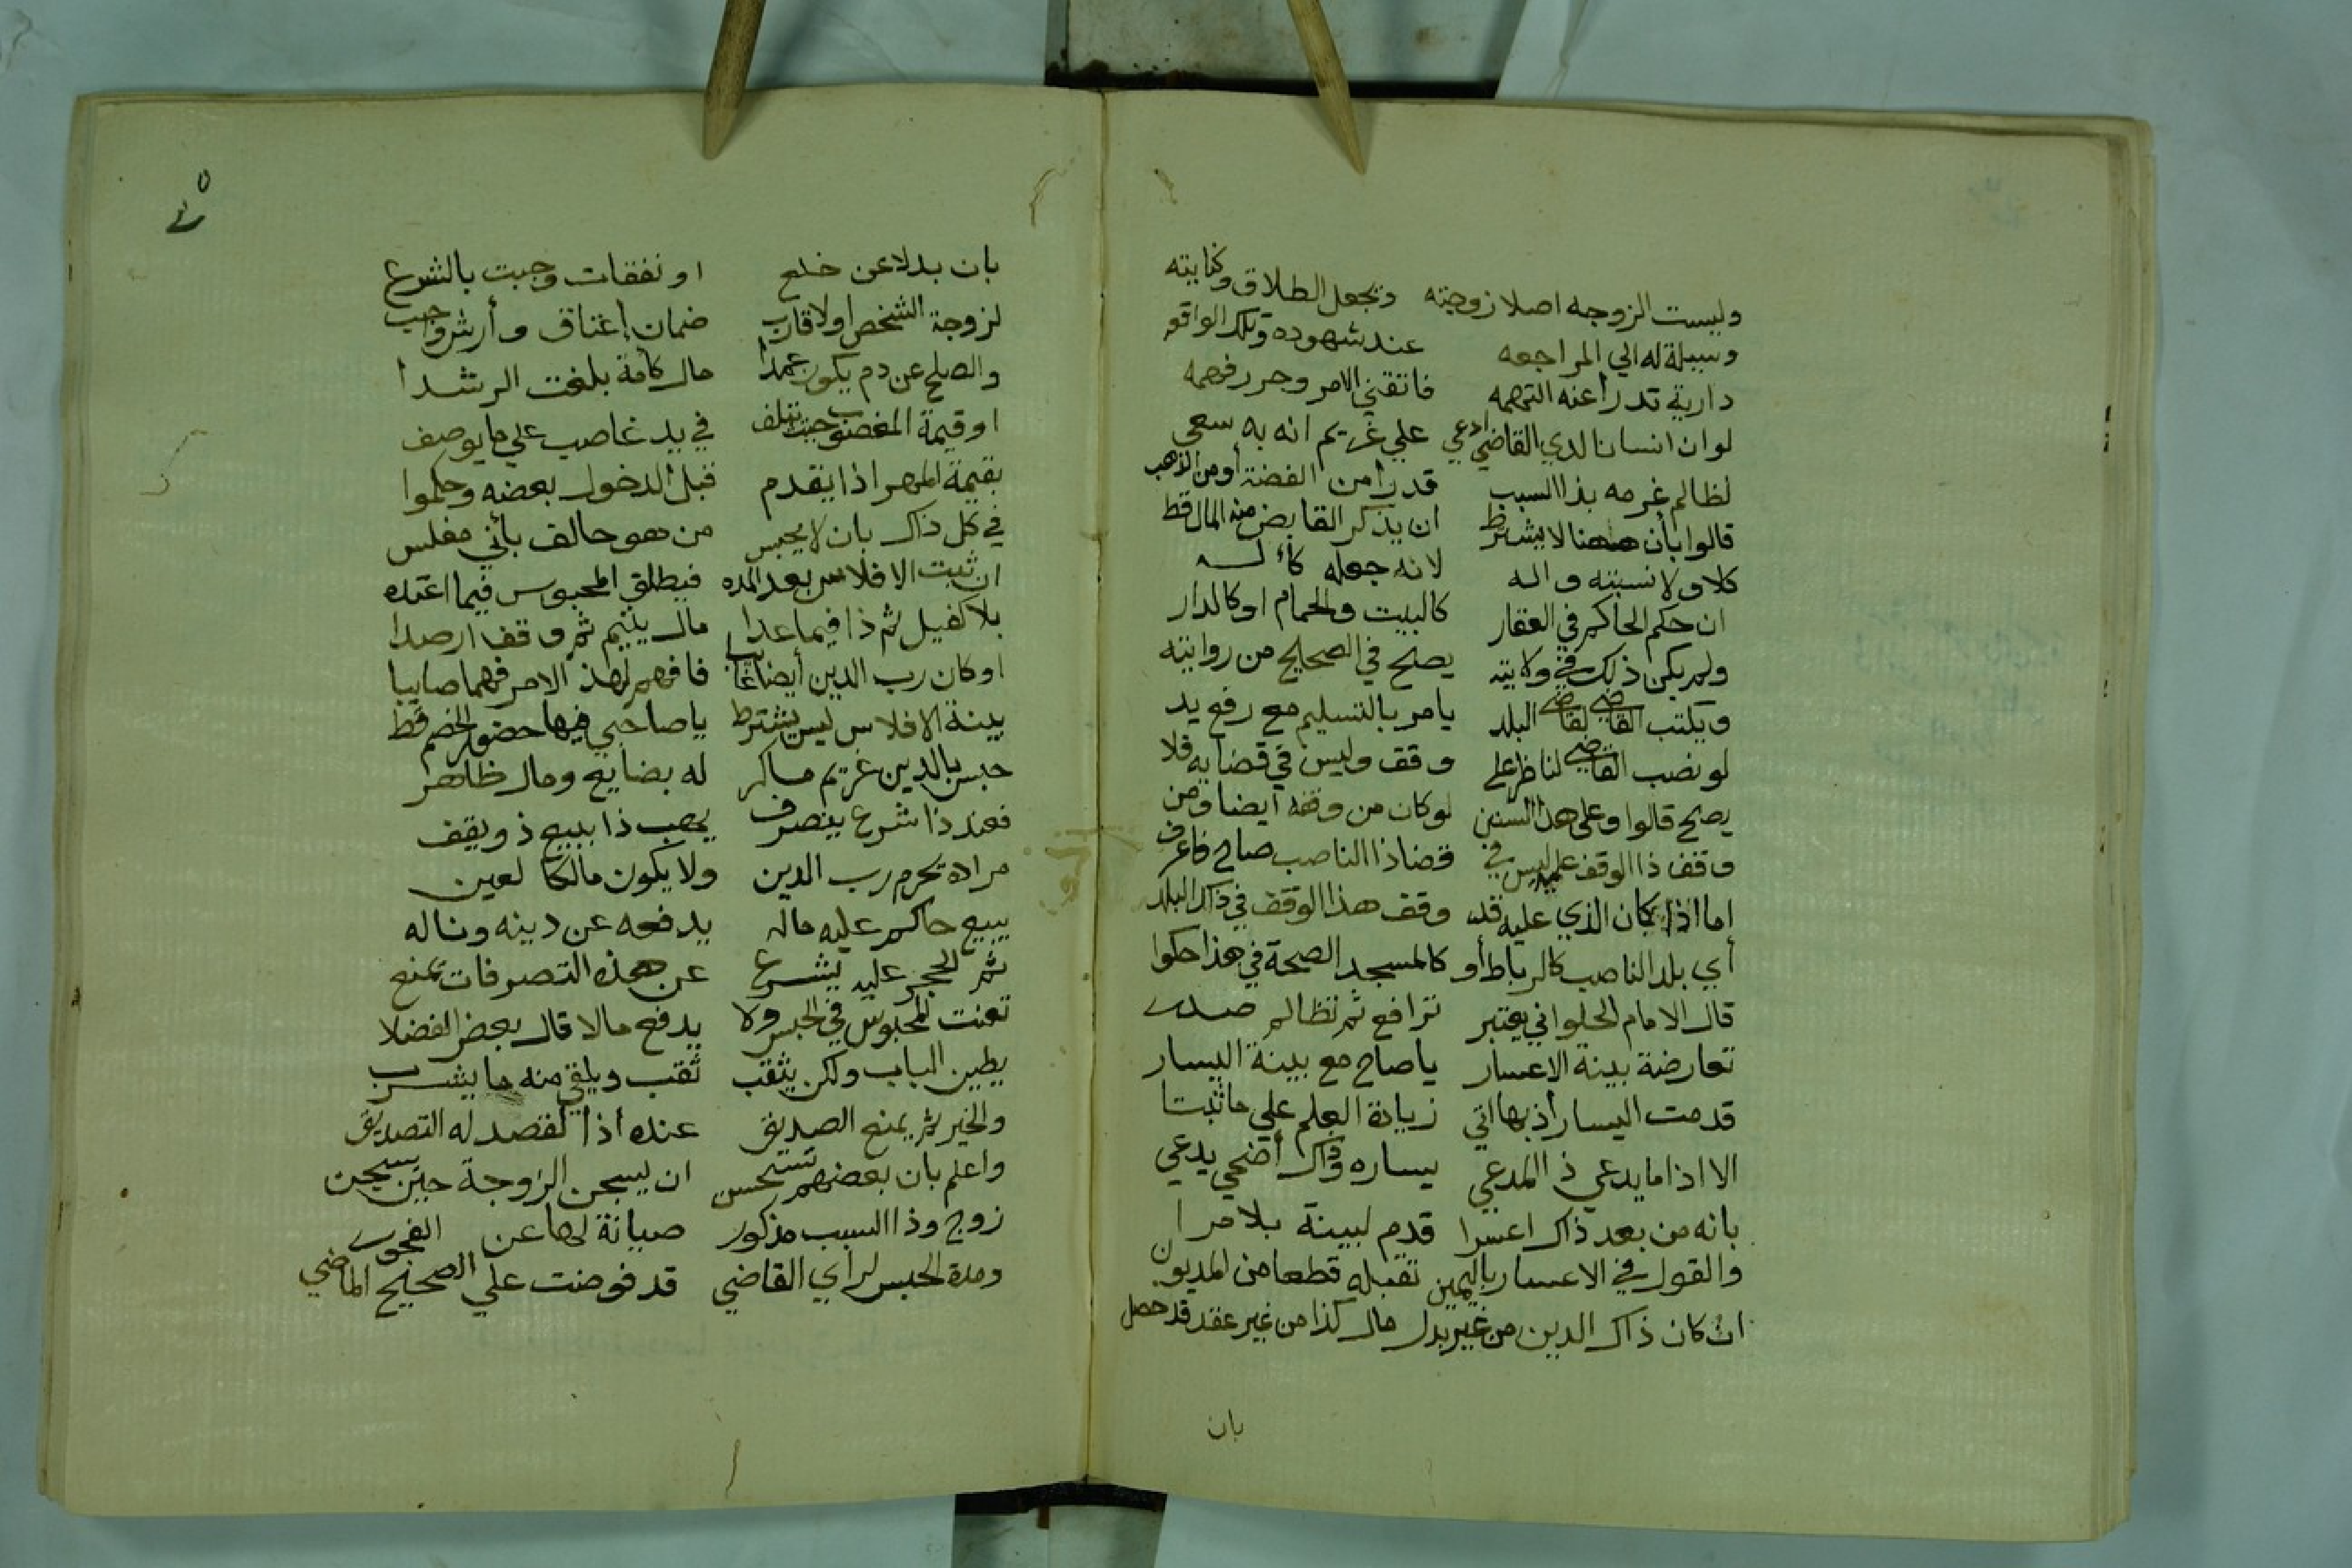 وليست الزوجه اصلا زوجته وتجعل الطلاق وكنايته
وسبيلة له الي المراجعه عند شهوده وتلك الواقعه
دارية تدرأ عنه التهمه فاتقني الامر وحرر فهمه
لو ان انسانا لدي القاضي ادعي علي غريم انه به سعي
لظالم غرمه بذا السبب قدرا من الفضة أو من الذهب
قالوا بأن هاهنا لا يشترط ان يذكر القابض منه المال قط
كلا ولا نسبته واله لانه جعله كاله
ان حكم الحاكم في العقار كالبيت والحمام او كالدار
ولم يكن ذلك في ولايته يصح في الصحيح من روايته
ويكتب القاضي لقاضي البلد يامر بالتسليم مع رفع يد
لو نصب القاضي لناظر علي وقف وليس في قضايه فلا
يصح قالوا وعلي هذا السنن لو كان من وقفه ايضا ومن
وقف ذا الوقف عليه ليس في قضا ذا الناصب صاح فاعرف
اما اذا كان الذي عليه قد وقف هذا الوقف في ذاك البلد
أي بلد الناصب كالرباط أو كالمسجد الصحة في هذا حكوا
قال الامام الحلواني يعتبر ترافع ثم تظالم صدر
تعارضة بينة الاعسار يا صاح مع بينة اليسار
قدمت اليسار أذ بها اتي زيادة العلم علي ما ثبتا
الا اذا ما يدعي ذ المدعي يساره وذاك أضحي يدعي
بانه من بعد ذاك اعسرا قدم لبينة بلا مرا
والقول في الاعسار باليمين تقبله قطعا من المديون
ان كان ذاك الدين من غير بدل مال كذا من غير عقد قد حصل
بان
بان بدلا عن خلع او نفقات وجبت بالشرع
لزوجة الشخص او لاقارب ضمان إعتاق وأرش وجب
والصلح عن دم يكون عمدا مال كامة بلغت الرشدا
او قيمة المغصوب حيث تتلف في يد غاصب علي ما يوصف
بقيمة المهر اذا يقدم قبل الدخول بعضه وحكموا
في كل ذاك بان لا يحبس من هو حالف بأني مفلس
ان ثبت الافلاس بعد المده فيطلق المحبوس فيما اعتده
بلا كفيل ثم ذا فيما عدا مال يتيم ثم وقف ارصدا
او كان رب الدين أيضا غايبا فافهم لهذ الامر فهما صايبا
بينة الافلاس ليس يشترط يا صاحبي فيها حضور الخصم قط
حبس بالدين غريم ماكر له بضايع ومال ظاهر
فعند ذا شرع ينصرف يحب ذا ببيع ذ ويقف
مراده تحرم رب الدين ولا يكون مالكا لعين
يبيع حاكم عليه ماله يدفعه عن دينه وناله
ثم الحجر عليه يشرع عن هذه التصرفات تمنع
تعنت المحبوس في الحبس ولا يدفع مالا قال بعض الفضلا
يطين الباب ولكن يثقب ثقب ويلقي منه ما يشرب
والخير ثم يمنع الصديق عنده اذا لقصد له التصديق
واعلم بان بعضهم تستحسن ان يسجن الزوجة حين يسجن
زوج وذا السبب مذكور صيانة لها عن الفجور
ومدة الحبس لراي القاضي قد فوضت علي الصحيح الماضي